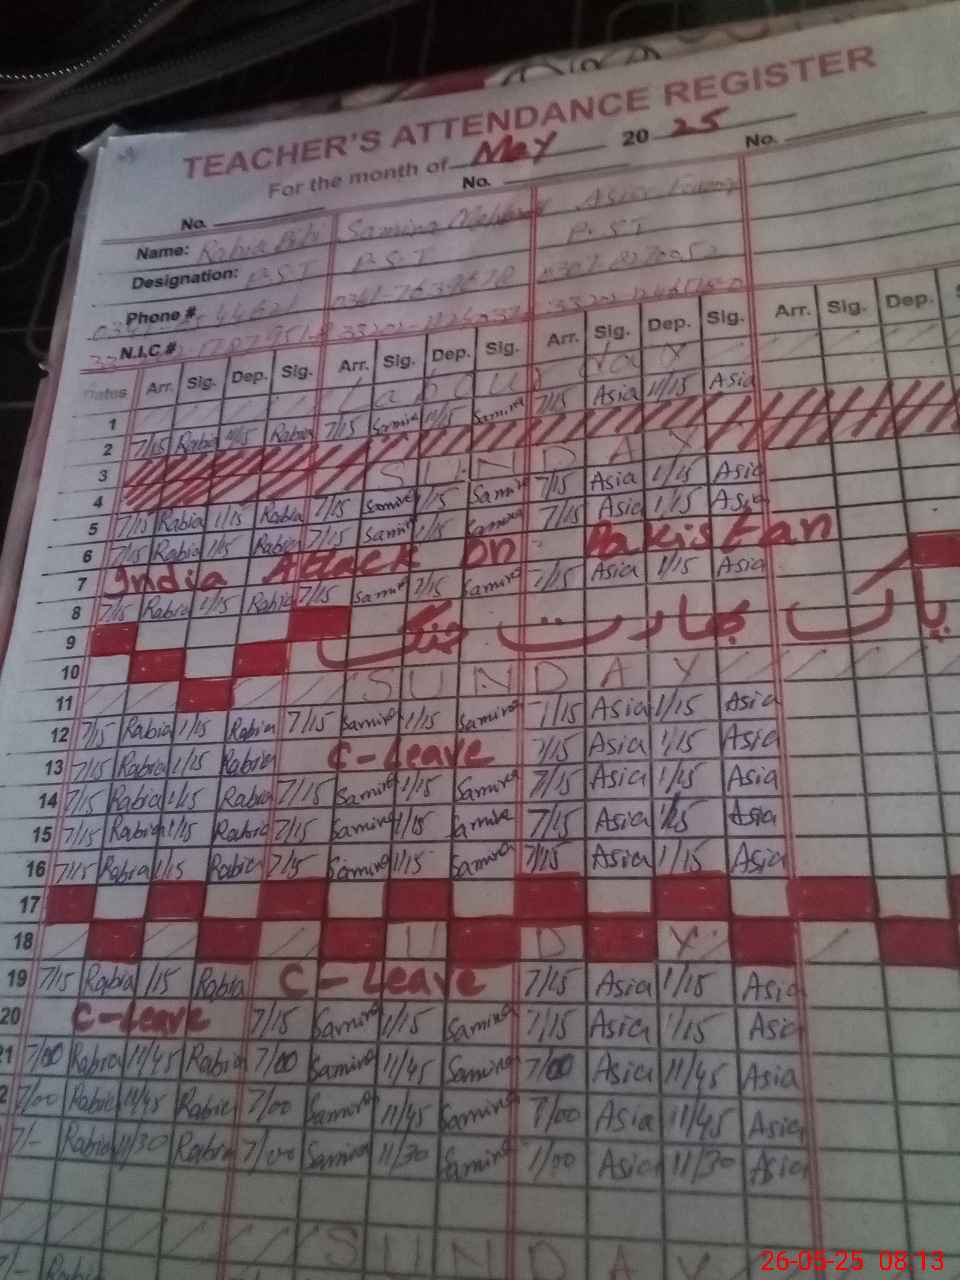 TEACHER'S ATTENDANCE REGISTER
For the month of May 2025
No. No. No.
Name: Rabia Bibi Samina Asia
Designation: P.S.T P.S.T P.S.T
Phone #
N.I.C #
Dates Arr. Sig. Dep. Sig. Arr. Sig. Dep. Sig. Arr. Sig. Dep. Sig. Arr. Sig. Dep.
1 Labour Day
2 7/15 Rabia 11/15 Rabia 7/15 Samina 11/15 Samina 7/15 Asia 11/15 Asia
3
4 SUNDAY
5 7/15 Rabia 1/15 Rabia 7/15 Samina 1/15 Samina 7/15 Asia 1/15 Asia
6 7/15 Rabia 1/15 Rabia 7/15 Samina 1/15 Samina 7/15 Asia 1/15 Asia
7 India Attack on Pakistan
8 7/15 Rabia 1/15 Rabia 7/15 Samina 1/15 Samina 7/15 Asia 1/15 Asia
9 پاک بھارت جنگ
10
11 SUNDAY
12 7/15 Rabia 1/15 Rabia 7/15 Samina 1/15 Samina 7/15 Asia 1/15 Asia
13 7/15 Rabia 1/15 Rabia C-Leave 7/15 Asia 1/15 Asia
14 7/15 Rabia 1/15 Rabia 7/15 Samina 1/15 Samina 7/15 Asia 1/15 Asia
15 7/15 Rabia 1/15 Rabia 7/15 Samina 1/15 Samina 7/15 Asia 1/15 Asia
16 7/15 Rabia 1/15 Rabia 7/15 Samina 1/15 Samina 7/15 Asia 1/15 Asia
17
18 U D Y
19 7/15 Rabia 1/15 Rabia C-Leave 7/15 Asia 1/15 Asia
20 C-Leave 7/15 Samina 1/15 Samina 7/15 Asia 1/15 Asia
21 7/00 Rabia 11/45 Rabia 7/00 Samina 11/45 Samina 7/00 Asia 11/45 Asia
2 7/00 Rabia 11/45 Rabia 7/00 Samina 11/45 Samina 7/00 Asia 11/45 Asia
7/- Rabia 11/30 Rabia 7/00 Samina 11/30 Samina 7/00 Asia 11/30 Asia
SUNDAY
7/- Rabia
26-05-25 08:13